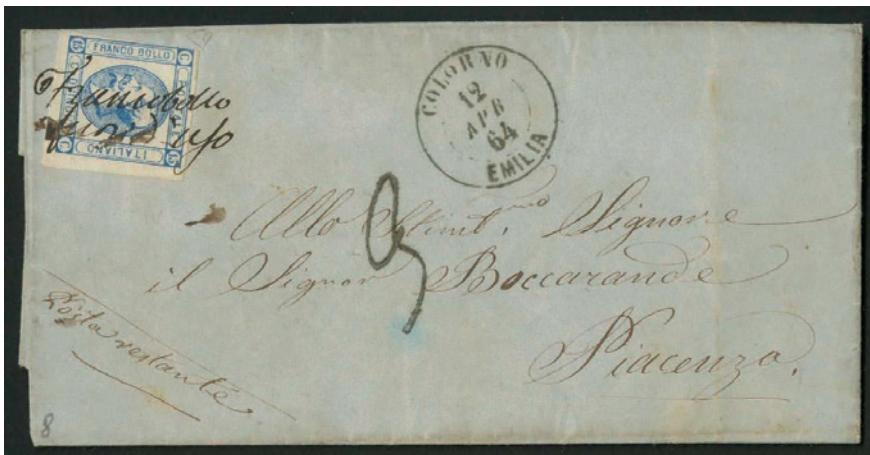 FRANCO BOLLO
C
15
ITALIANO
Francobollo
fuori d'uso
COLORNO
12
APR
64
EMILIA
3
Allo Stimt.mo Signore
il Signor Boccarande
Piacenza.
Posta restante
8